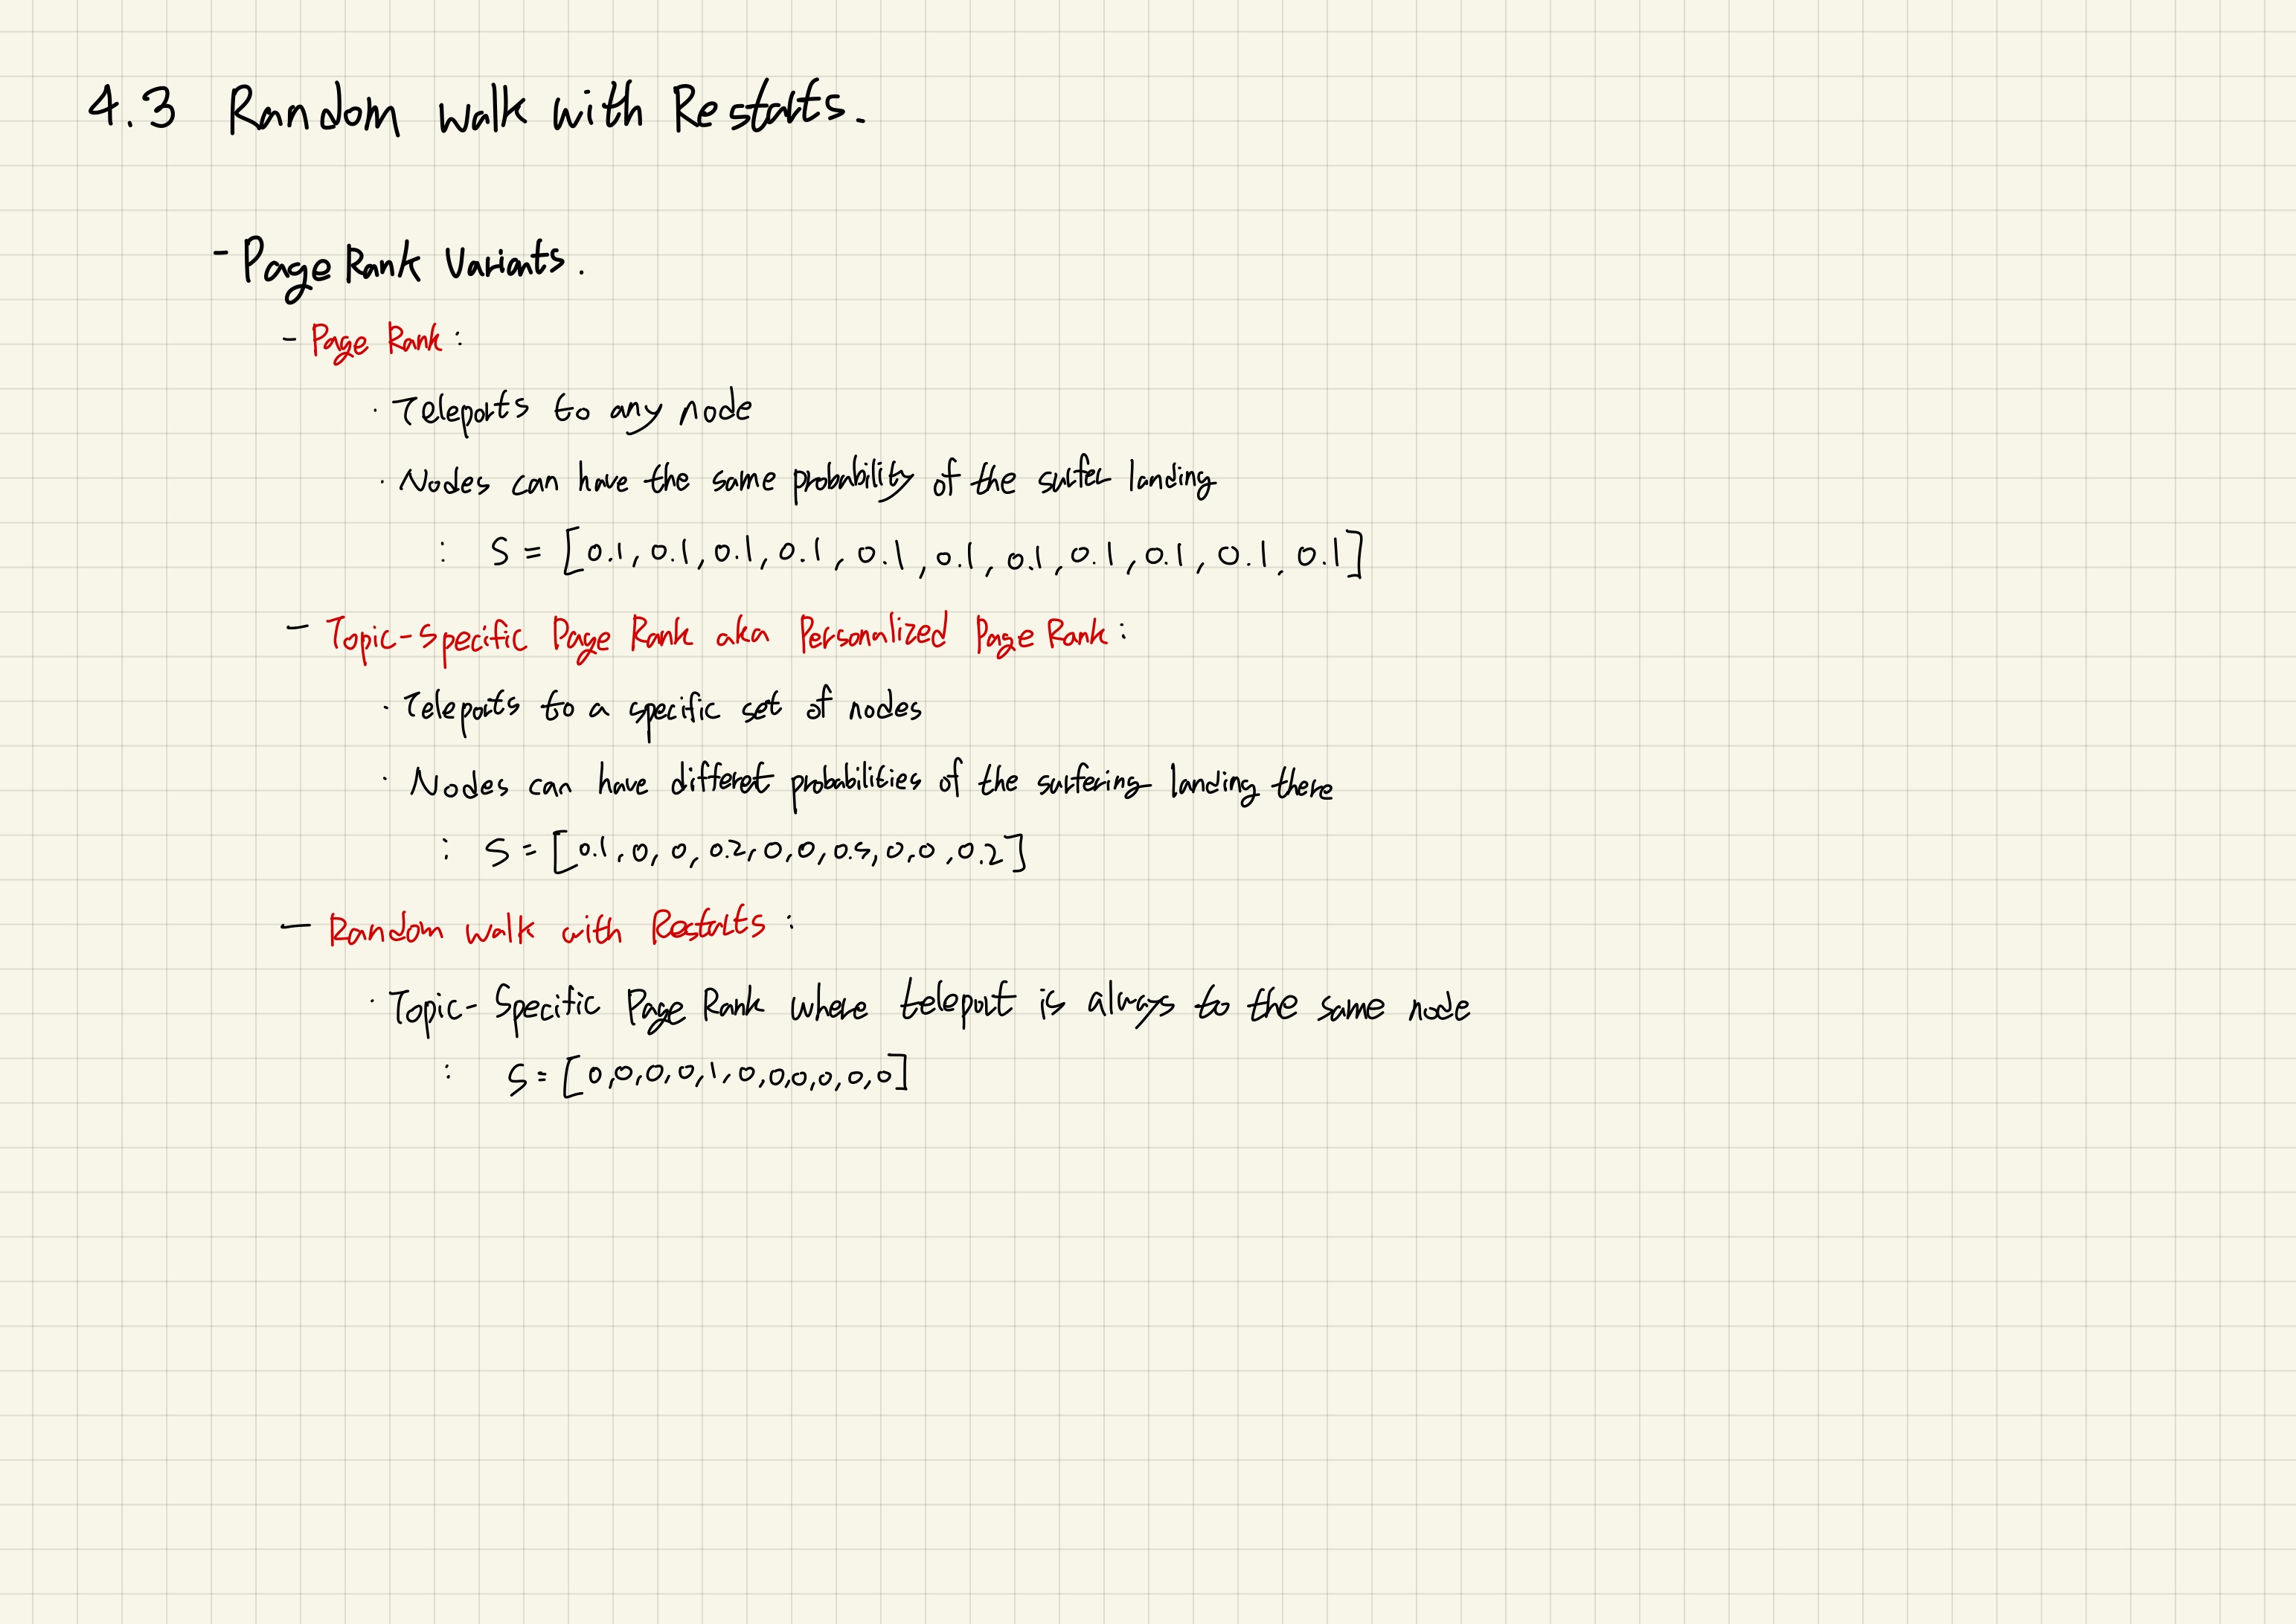 4.3 Random walk with Restarts.
- Page Rank Variants.
- Page Rank :
· Teleports to any node
· Nodes can have the same probability of the surfer landing
: S = [0.1, 0.1, 0.1, 0.1, 0.1, 0.1, 0.1, 0.1, 0.1, 0.1, 0.1]
- Topic-Specific Page Rank aka Personalized Page Rank :
· Teleports to a specific set of nodes
· Nodes can have different probabilities of the surfering landing there
: S = [0.1, 0, 0, 0.2, 0, 0, 0.5, 0, 0, 0.2]
- Random walk with Restarts :
· Topic-Specific Page Rank where teleport is always to the same node
: S = [0, 0, 0, 0, 1, 0, 0, 0, 0, 0, 0]